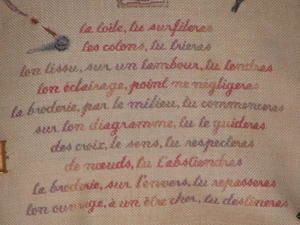 la toile, tu surfileras
les cotons, tu trieras
ton tissu, sur un tambour, tu tendras
ton éclairage, point ne négligeras
la broderie, par le milieu, tu commenceras
sur ton diagramme, tu te guideras
des croix, le sens, tu respecteras
de nœuds, tu t'abstiendras
la broderie, sur l'envers, tu repasseras
ton ouvrage, à un être cher, tu destineras